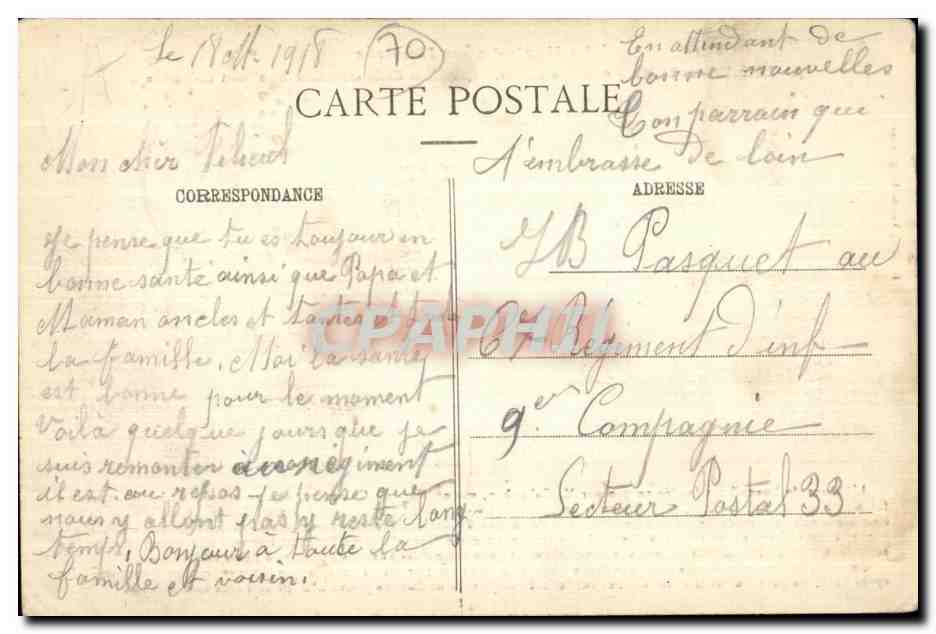 le 18 oct 1918 (70)
En attendant de
bonne nouvelles
CARTE POSTALE
Ton parrain qui
Mon cher
t'embrasse de loin
CORRESPONDANCE
ADRESSE
Je pense que tu es toujour en
bonne santé ainsi que Papa et
Maman oncles et tantes
la famille. Moi la santé
est bonne pour le moment
Voilà quelque jours que je
suis remonter au regiment
il est au repos je pense que
nous y allont pas y resté long
temp. Bonjour à toute la
famille et voisin.
JB Pasquet au
67 Régiment d'inf
9e Compagnie
Secteur Postal 33
CPAPHIL